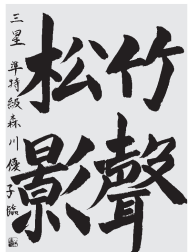 竹聲
松影
三星 準特級 森川優子臨